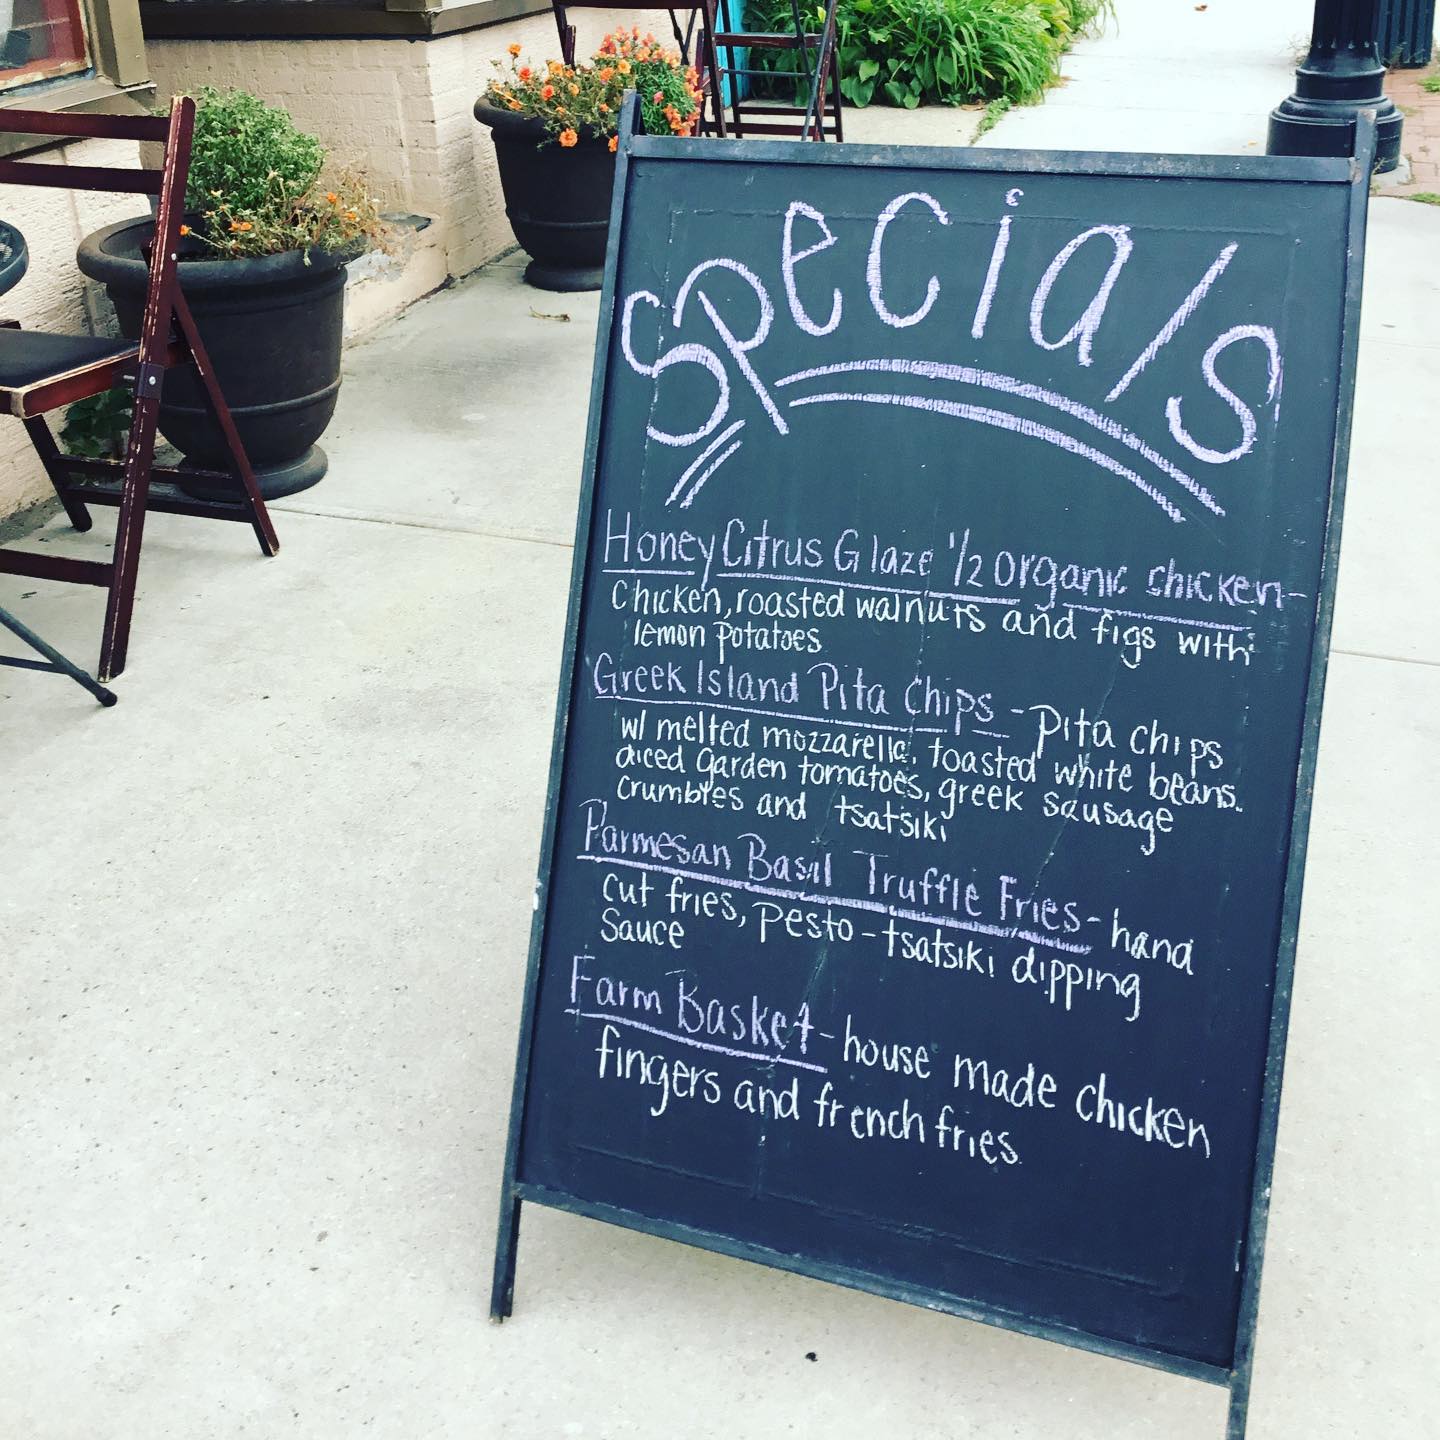 Specials
Honey Citrus Glaze 1/2 organic chicken-
Chicken, roasted walnuts and figs with
lemon potatoes
Greek Island Pita Chips - Pita chips
w/ melted mozzarella, toasted white beans.
diced garden tomatoes, greek sausage
crumbles and tsatsiki
Parmesan Basil Truffle Fries - hand
cut fries, pesto - tsatsiki dipping
Sauce
Farm Basket - house made chicken
fingers and french fries.